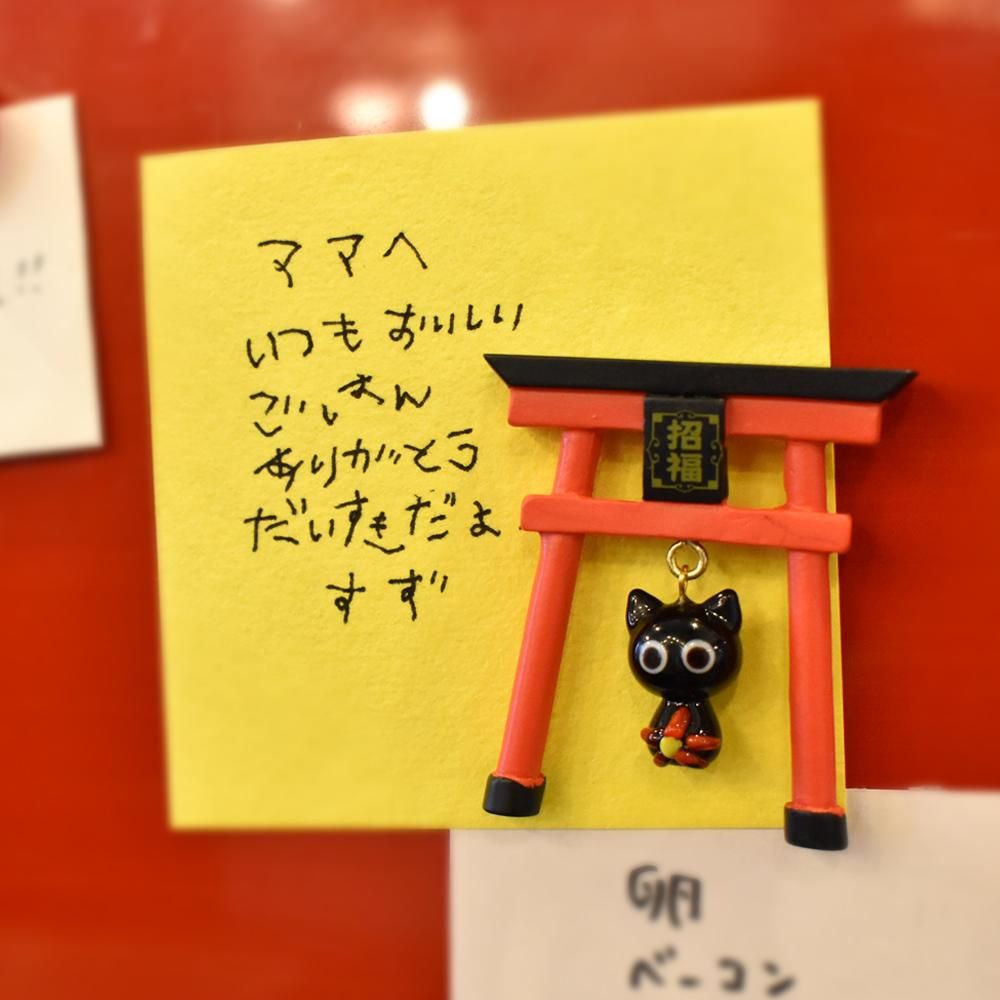 ママへ
いつもおいしい
ごはん
ありがとう
だいすきだよ
すず
招福
卵
ベーコン
!!